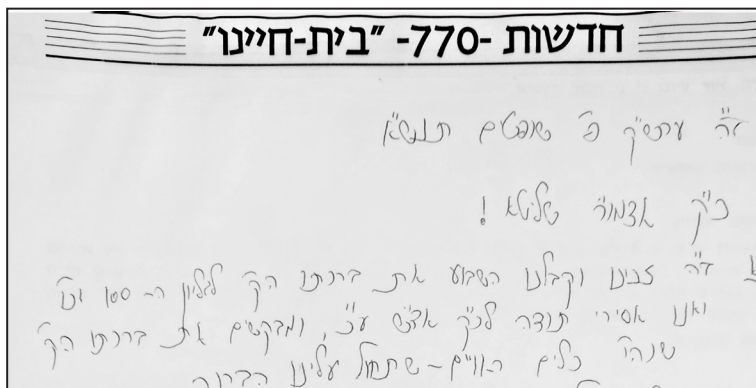 חדשות -770- "בית-חיינו"
ב"ה עש"ק פ' שופטים תנש"א
כ"ק אדמו"ר שליט"א !
ב"ה זכינו וקבלנו השבוע את ברכתו הק' לגליון ה-100 וכו'
ואנו אסירי תודה לכ"ק אד"ש ע"כ, ומבקשים את ברכתו הק'
שנהי' כלים ראויים - שתחול עלינו הברכה